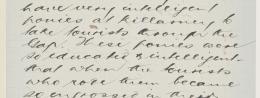 have very intelligent
ponies at Killarney to
take tourists through the
Gap. These ponies were
so educated & intelligent
that when the tourists
who rode them became
so engrossed in their